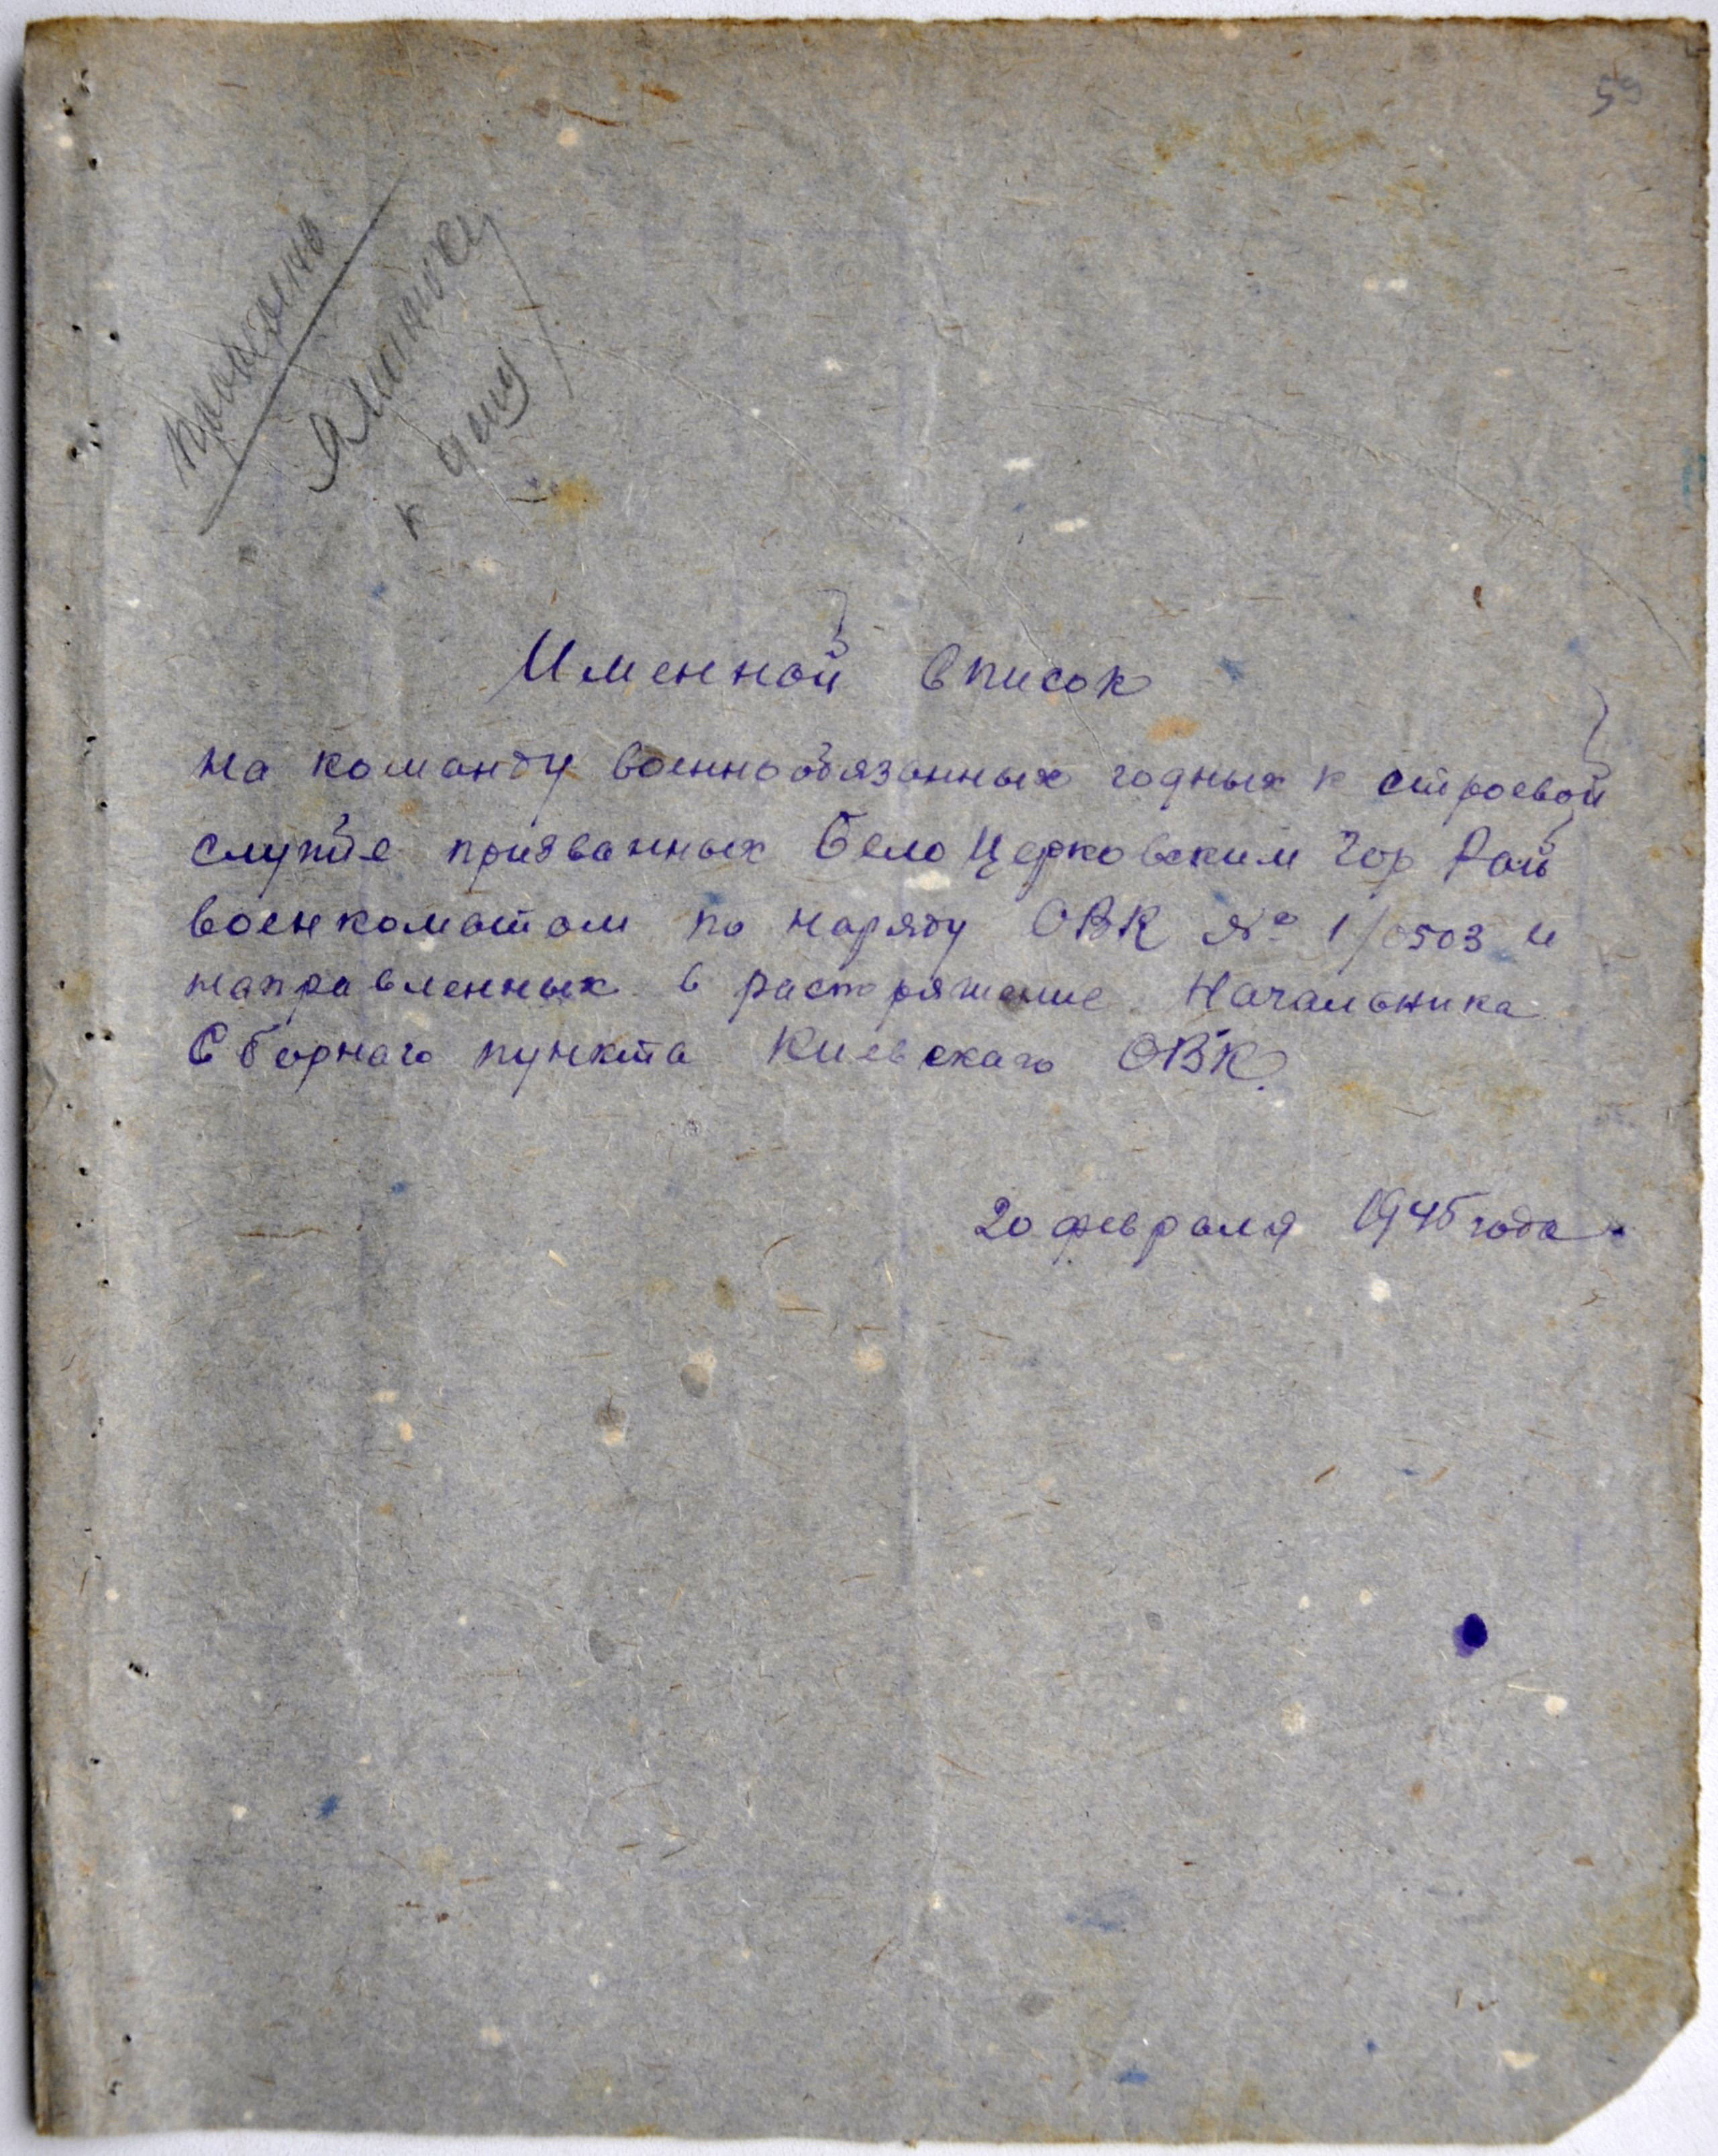 Именной список
на команду военнообязанных годных к строевой
службе призванных Бело Церковским Гор Рай
военкоматом по наряду ОВК № 1/0503 и
направленных в распоряжение Начальника
Сборнаго пункта Киевскаго ОВК.
20 февраля 1945 года.